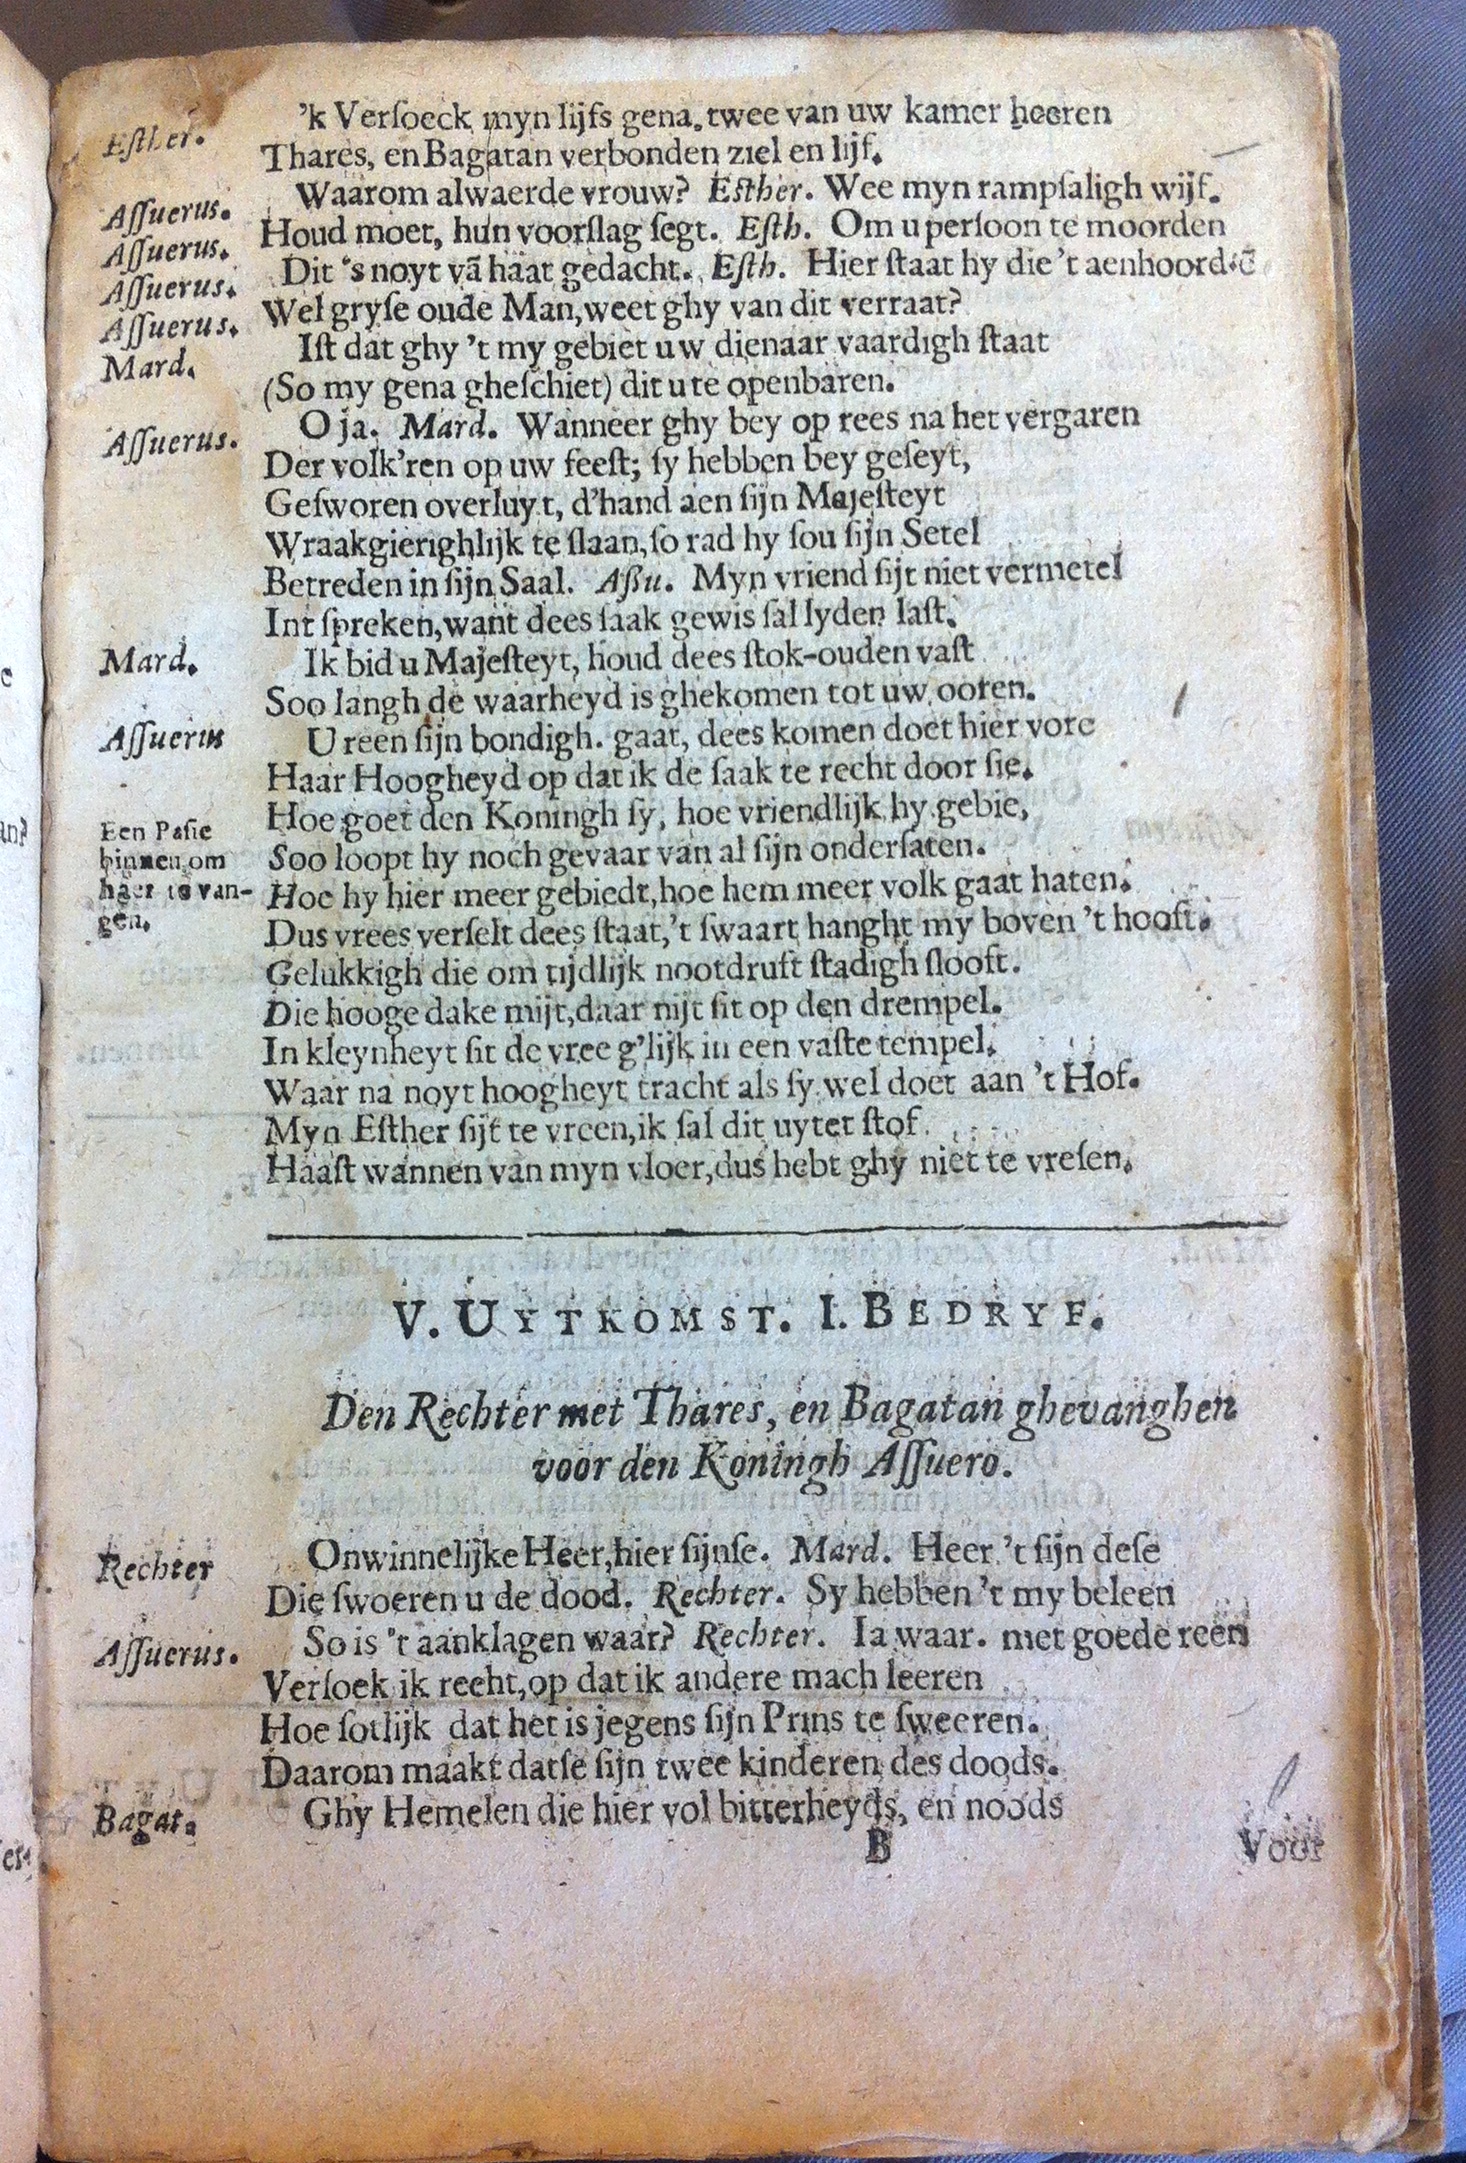 Esther. 'k Verſoeck myn lijfs gena. twee van uw kamer heeren
Thares, en Bagatan verbonden ziel en lijf.
Aſſuerus. Waarom alwaerde vrouw? Esther. Wee myn rampſaligh wijf.
Aſſuerus. Houd moet, hun voorſlag ſegt. Eſth. Om u perſoon te moorden
Aſſuerus. Dit 's noyt vā haat gedacht. Eſth. Hier ſtaat hy die 't aenhoordē
Aſſuerus. Wel gryſe oude Man, weet ghy van dit verraat?
Mard. Iſt dat ghy 't my gebiet uw dienaar vaardigh ſtaat
(So my gena gheſchiet) dit u te openbaren.
Aſſuerus. O ja. Mard. Wanneer ghy bey op rees na het vergaren
Der volk'ren op uw feeſt; ſy hebben bey geſeyt,
Geſworen overluyt, d'hand aen ſijn Majeſteyt
Wraakgierighlijk te ſlaan, ſo rad hy ſou ſijn Setel
Betreden in ſijn Saal. Aßu. Myn vriend ſijt niet vermetel
Int ſpreken, want dees ſaak gewis ſal lyden laſt.
Mard. Ik bid u Majeſteyt, houd dees ſtok-ouden vaſt
Soo langh de waarheyd is ghekomen tot uw ooren.
Aſſuerus U reen ſijn bondigh. gaat, dees komen doet hier vore
Haar Hoogheyd op dat ik de ſaak te recht door ſie.
Hoe goet den Koningh ſy, hoe vriendlijk hy gebie,
Een Paſie binnen om haer te van-gen. Soo loopt hy noch gevaar van al ſijn onderſaten.
Hoe hy hier meer gebiedt, hoe hem meer volk gaat haten.
Dus vrees verſelt dees ſtaat, 't ſwaart hanght my boven 't hooft.
Gelukkigh die om tijdlijk nootdruft ſtadigh ſlooft.
Die hooge dake mijt, daar nijt ſit op den drempel.
In kleynheyt ſit de vree g'lijk in een vaſte tempel.
Waar na noyt hoogheyt tracht als ſy wel doet aan 't Hof.
Myn Eſther ſijt te vreen, ik ſal dit uytet ſtof
Haaſt wannen van myn vloer, dus hebt ghy niet te vreſen.
V. UYTKOMST. I. BEDRYF.
Den Rechter met Thares, en Bagatan ghevanghen
voor den Koningh Aſſuero.
Rechter Onwinnelijke Heer, hier ſijnſe. Mard. Heer 't ſijn deſe
Die ſwoeren u de dood. Rechter. Sy hebben 't my beleen
Aſſuerus. So is 't aanklagen waar? Rechter. Ia waar. met goede reen
Verſoek ik recht, op dat ik andere mach leeren
Hoe ſotlijk dat het is jegens ſijn Prins te ſweeren.
Daarom maakt datſe ſijn twee kinderen des doods.
Bagat. Ghy Hemelen die hier vol bitterheyds, en noods
B Voor